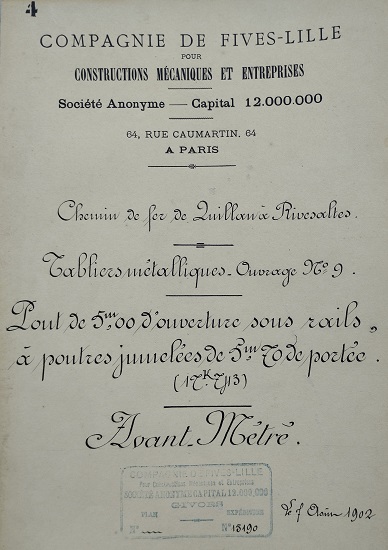 4
COMPAGNIE DE FIVES-LILLE
POUR
CONSTRUCTIONS MÉCANIQUES ET ENTREPRISES
Société Anonyme — Capital 12.000.000
64, RUE CAUMARTIN, 64
A PARIS
Chemin de fer de Quillan à Rivesaltes.
Tabliers métalliques - Ouvrage N° 9.
Pont de 5m,00 d'ouverture sous rails,
à poutres jumelées de 5m,70 de portée.
Avant-Métré.
COMPAGNIE DE FIVES-LILLE
Pour Constructions Mécaniques et Entreprises
SOCIÉTÉ ANONYME CAPITAL 12.000.000
GIVORS
PLAN EXPÉDITION
N° N° 13190
1902